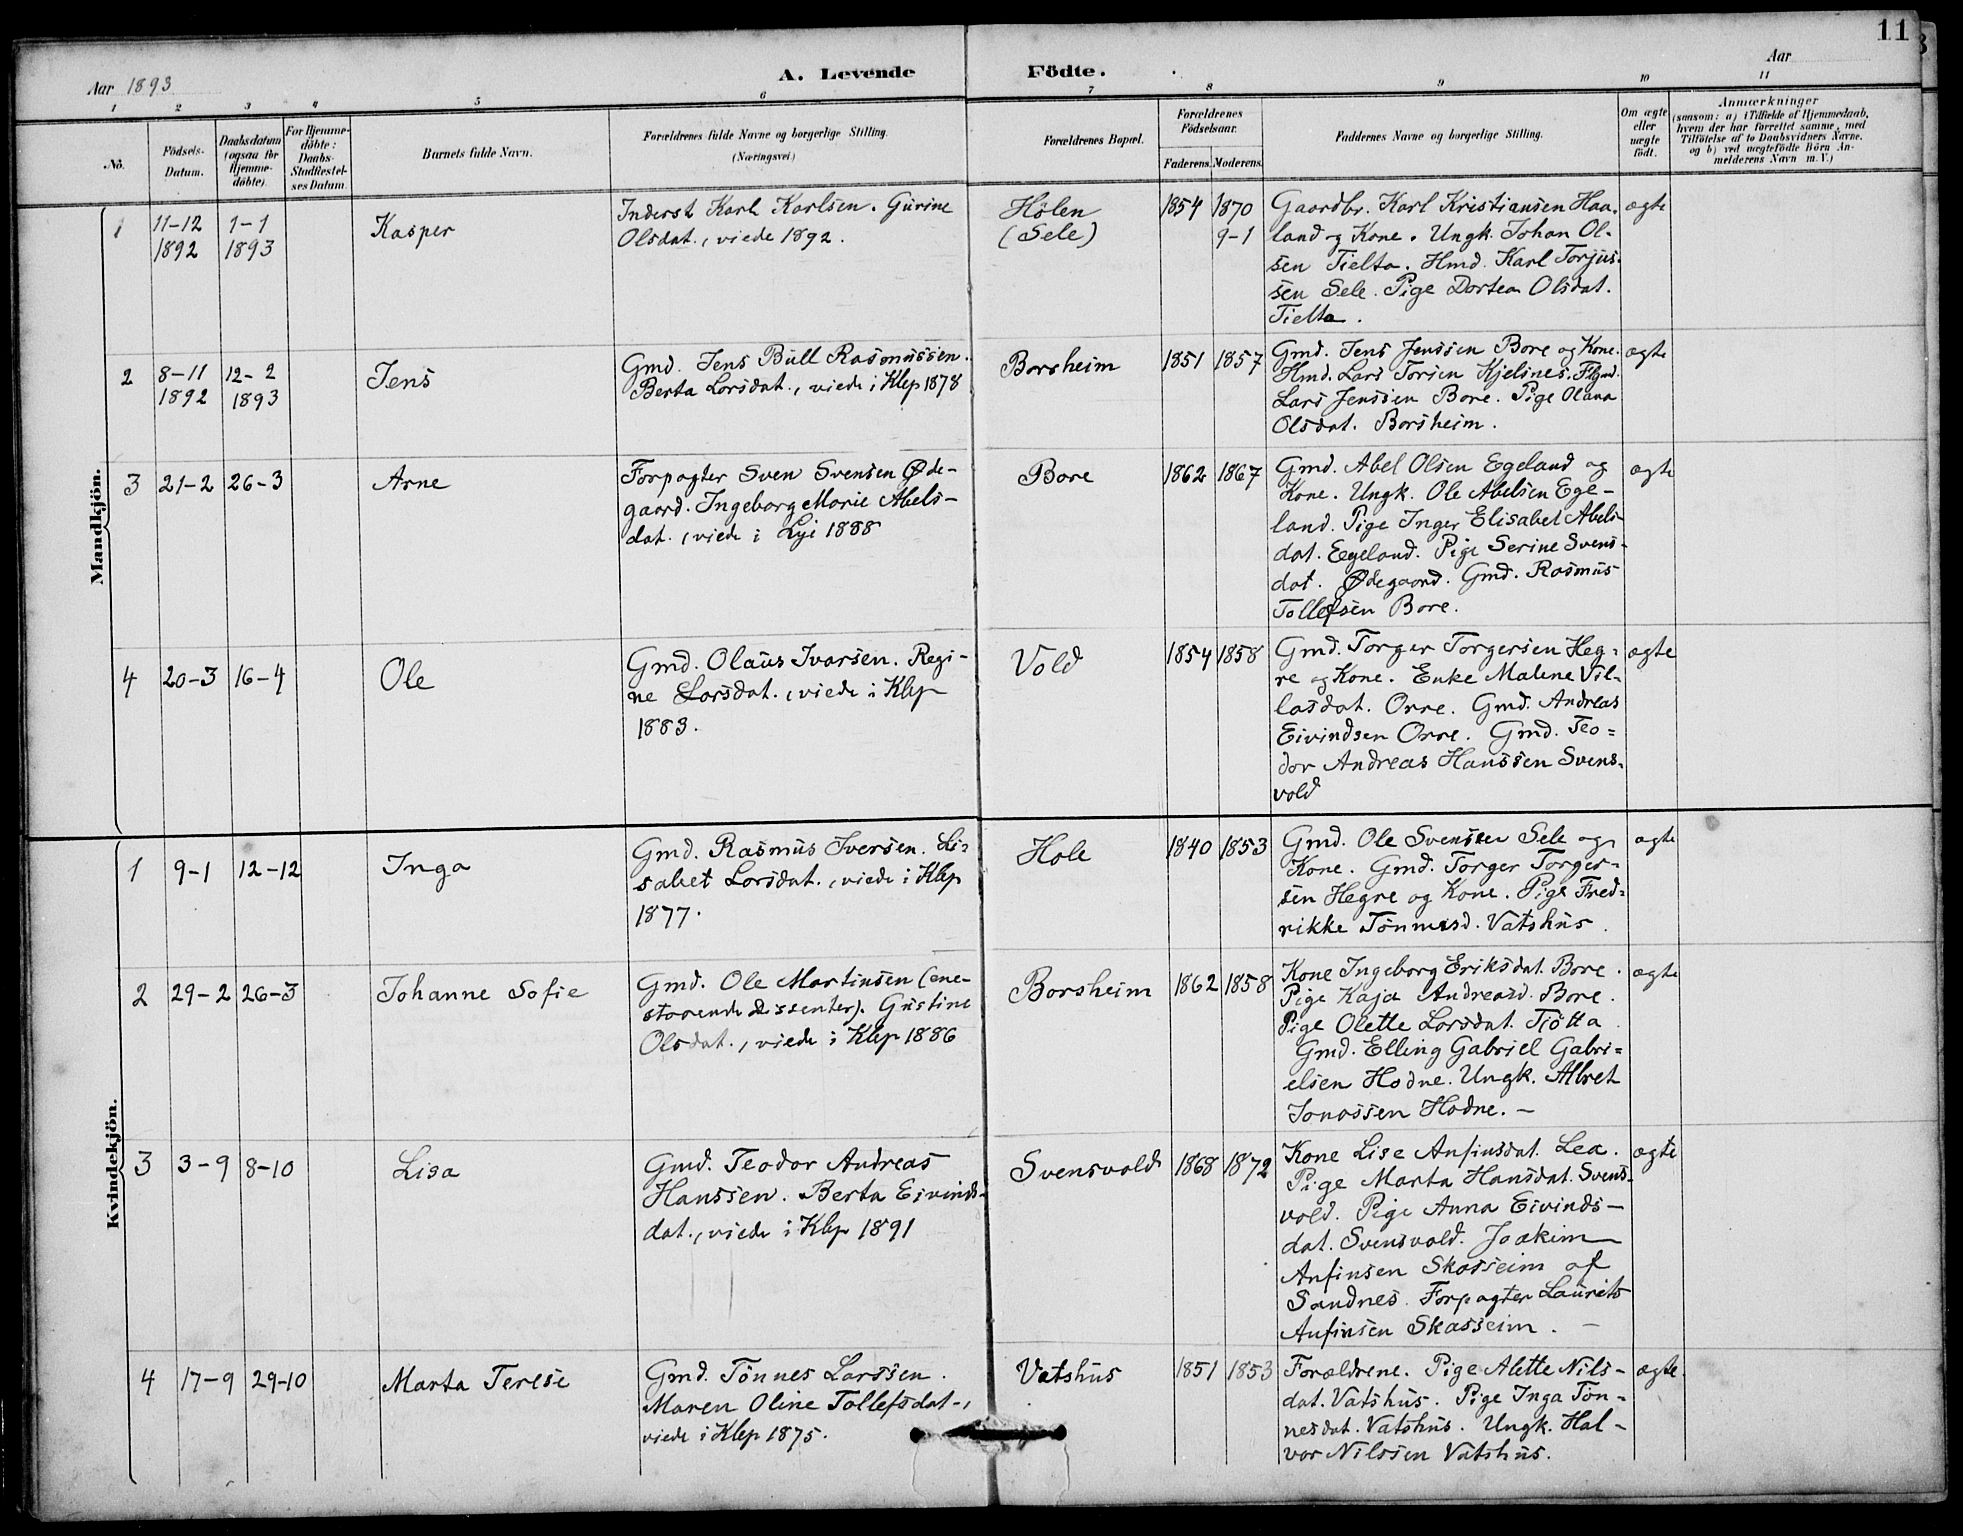 11
Aar 1893
A. Levende Födte.
Aar
1 2 3 4 5 6 7 8 9 10 11
No.
Födsels-
Datum.
Daabsdatum
(ogsaa for
Hjemme-
döbte)
For Hjemme-
döbte:
Daabs-
Stadfæstel-
ses Datum.
Barnets fulde Navn.
Forældrenes fulde Navne og borgerlige Stilling.
(Næringsvei)
Forældrenes Bopæl.
Forældrenes
Födselsaar.
Faderens. Moderens.
Faddernes Navne og borgerlige Stilling.
Om ægte
eller
uægte
födt.
Anmærkninger
(saasom: a) i Tilfælde af Hjemmedaab,
hvem der har forrettet samme, med
Tilföielse af to Daabsvidners Navne.
og b) ved uægtefödte Börn An-
melderens Navn m. V.)
Mandkjön.
1
11-12
1892
1-1
1893
Kasper
Inderst Karl Karlsen. Gurine
Olsdat., viede 1892.
Hölen
(Sele)
1854
1870
9-1
Gaardbr. Karl Kristiansen Haa-
land og Kone. Ungk. Johan Ol-
sen Tielta. Hmd. Karl Torjus-
sen Sele. Pige Dortea Olsdat.
Tielta.
ægte
2
8-11
1892
12-2
1893
Jens
Gmd. Jens Bull Rasmussen.
Berta Larsdat., viede i Klep 1878
Borsheim
1851 1857
Gmd. Jens Jenssen Bore og Kone.
Hmd. Lars Torsen Kjelsnes.
Lars Jenssen Bore. Pige Olana
Olsdat. Borsheim.
ægte
3
21-2
26-3
Arne
Forpagter Sven Svensen Øde-
gaard. Ingeborg Marie Abels-
dat., viede i Lye 1888
Bore
1862 1867
Gmd. Abel Olsen Egeland og
Kone. Ungk. Ole Abelsen Ege-
land. Pige Inger Elisabet Abels-
dat. Egeland. Pige Serine Svens-
dat. Ødegaard. Gmd. Rasmus
Tollefsen Bore.
ægte
4
20-3
16-4
Ole
Gmd. Olaus Ivarsen. Regi-
ne Larsdat., viede i Klep
1883.
Vold
1854 1858
Gmd. Torger Torgersen Heg-
re og Kone. Enke Malene Vil-
lasdat. Orre. Gmd. Andreas
Eivindsen Orre. Gmd. Teo-
dor Andreas Hanssen Svens-
vold
ægte
Kvindekjön.
1
9-1
12-12
Inga
Gmd. Rasmus Iversen. Li-
sabet Larsdat., viede i Klep
1877.
Hole
1840 1853
Gmd. Ole Svensen Sele og
Kone. Gmd. Torger Torger-
sen Hegre og Kone. Pige Fred-
rikke Tönnesd. Vatshus.
ægte
2
29-2
26-3
Johanne Sofie
Gmd. Ole Martinsen (ene-
staaende dissenter). Gustine
Olsdat., viede i Klep 1886
Borsheim
1862 1858
Kone Ingeborg Eriksdat. Bore.
Pige Kaja Andreasd. Bore.
Pige Olette Larsdat. Tjötta
Gmd. Elling Gabriel Gabri-
elsen Hodne. Ungk. Albret
Jonassen Hodne. -
ægte
3
3-9
8-10
Lisa
Gmd. Teodor Andreas
Hanssen. Berta Eivinds-
dat., viede i Klep 1891
Svensvold
1868 1872
Kone Lise Anfinsdat. Lea.
Pige Marta Hansdat. Svens-
vold. Pige Anna Eivinds-
dat. Svensvold. Joakim
Anfinsen Skasseim af
Sandnes. Forpagter Laurits
Anfinsen Skasseim. -
ægte
4
17-9
29-10
Marta Terese
Gmd. Tönnes Larssen.
Maren Oline Tollefsdat.,
viede i Klep 1875.
Vatshus
1851 1853
Forældrene. Pige Alette Nils-
dat. Vatshus. Pige Inga Tön-
nesdat. Vatshus. Ungk. Hal-
vor Nilssen Vatshus.
ægte.